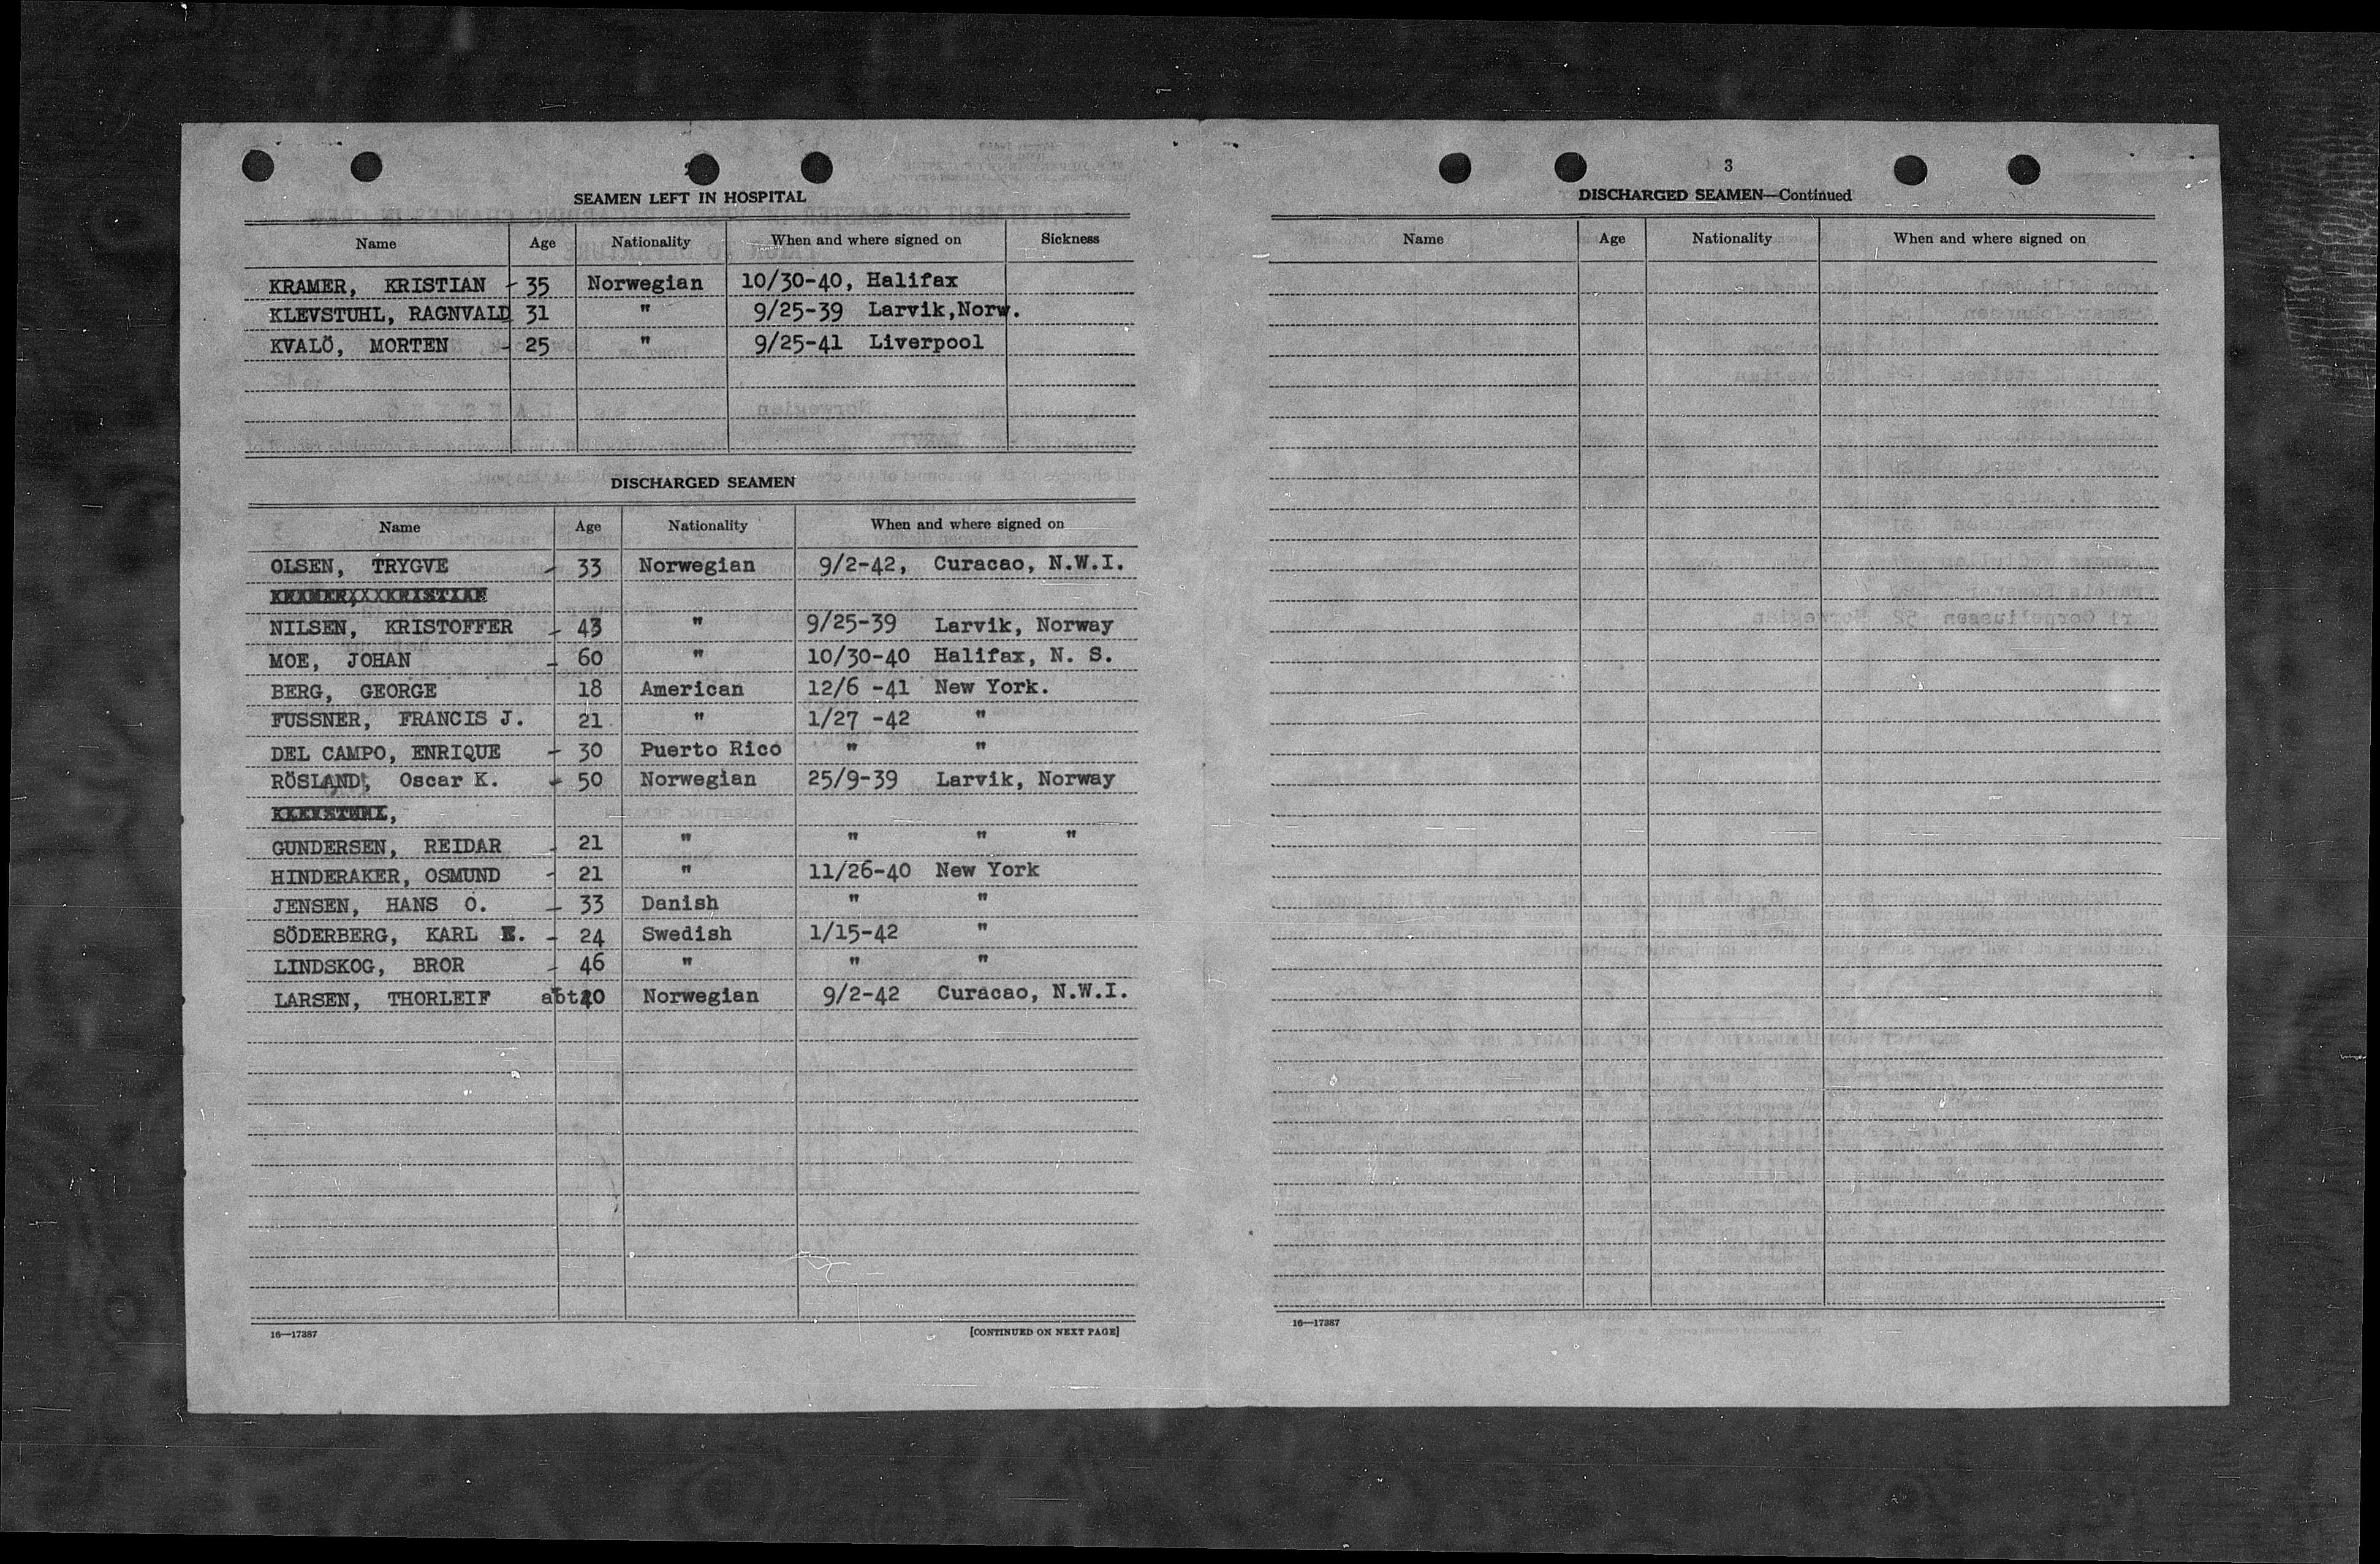 SEAMEN LEFT IN HOSPITAL
Name Age Nationality When and where signed on Sickness
KRAMER, KRISTIAN - 35 Norwegian 10/30-40, Halifax
KLEVSTUHL, RAGNVALD 31 " 9/25-39 Larvik,Norw.
KVALÖ, MORTEN - 25 " 9/25-41 Liverpool
DISCHARGED SEAMEN
Name Age Nationality When and where signed on
OLSEN, TRYGVE - 33 Norwegian 9/2-42, Curacao, N.W.I.
KRAMER,XXXKRISTIAN
NILSEN, KRISTOFFER - 43 " 9/25-39 Larvik, Norway
MOE, JOHAN - 60 " 10/30-40 Halifax, N. S.
BERG, GEORGE 18 American 12/6 -41 New York.
FUSSNER, FRANCIS J. 21 " 1/27 -42 "
DEL CAMPO, ENRIQUE - 30 Puerto Rico " "
RÖSLAND, Oscar K. - 50 Norwegian 25/9-39 Larvik, Norway
KLEVSTUHL,
GUNDERSEN, REIDAR - 21 " " " "
HINDERAKER, OSMUND - 21 " 11/26-40 New York
JENSEN, HANS O. - 33 Danish " "
SÖDERBERG, KARL E. - 24 Swedish 1/15-42 "
LINDSKOG, BROR - 46 " " "
LARSEN, THORLEIF abt.40 Norwegian 9/2-42 Curacao, N.W.I.
16—17387 [CONTINUED ON NEXT PAGE]
3
DISCHARGED SEAMEN—Continued
Name Age Nationality When and where signed on
16—17387